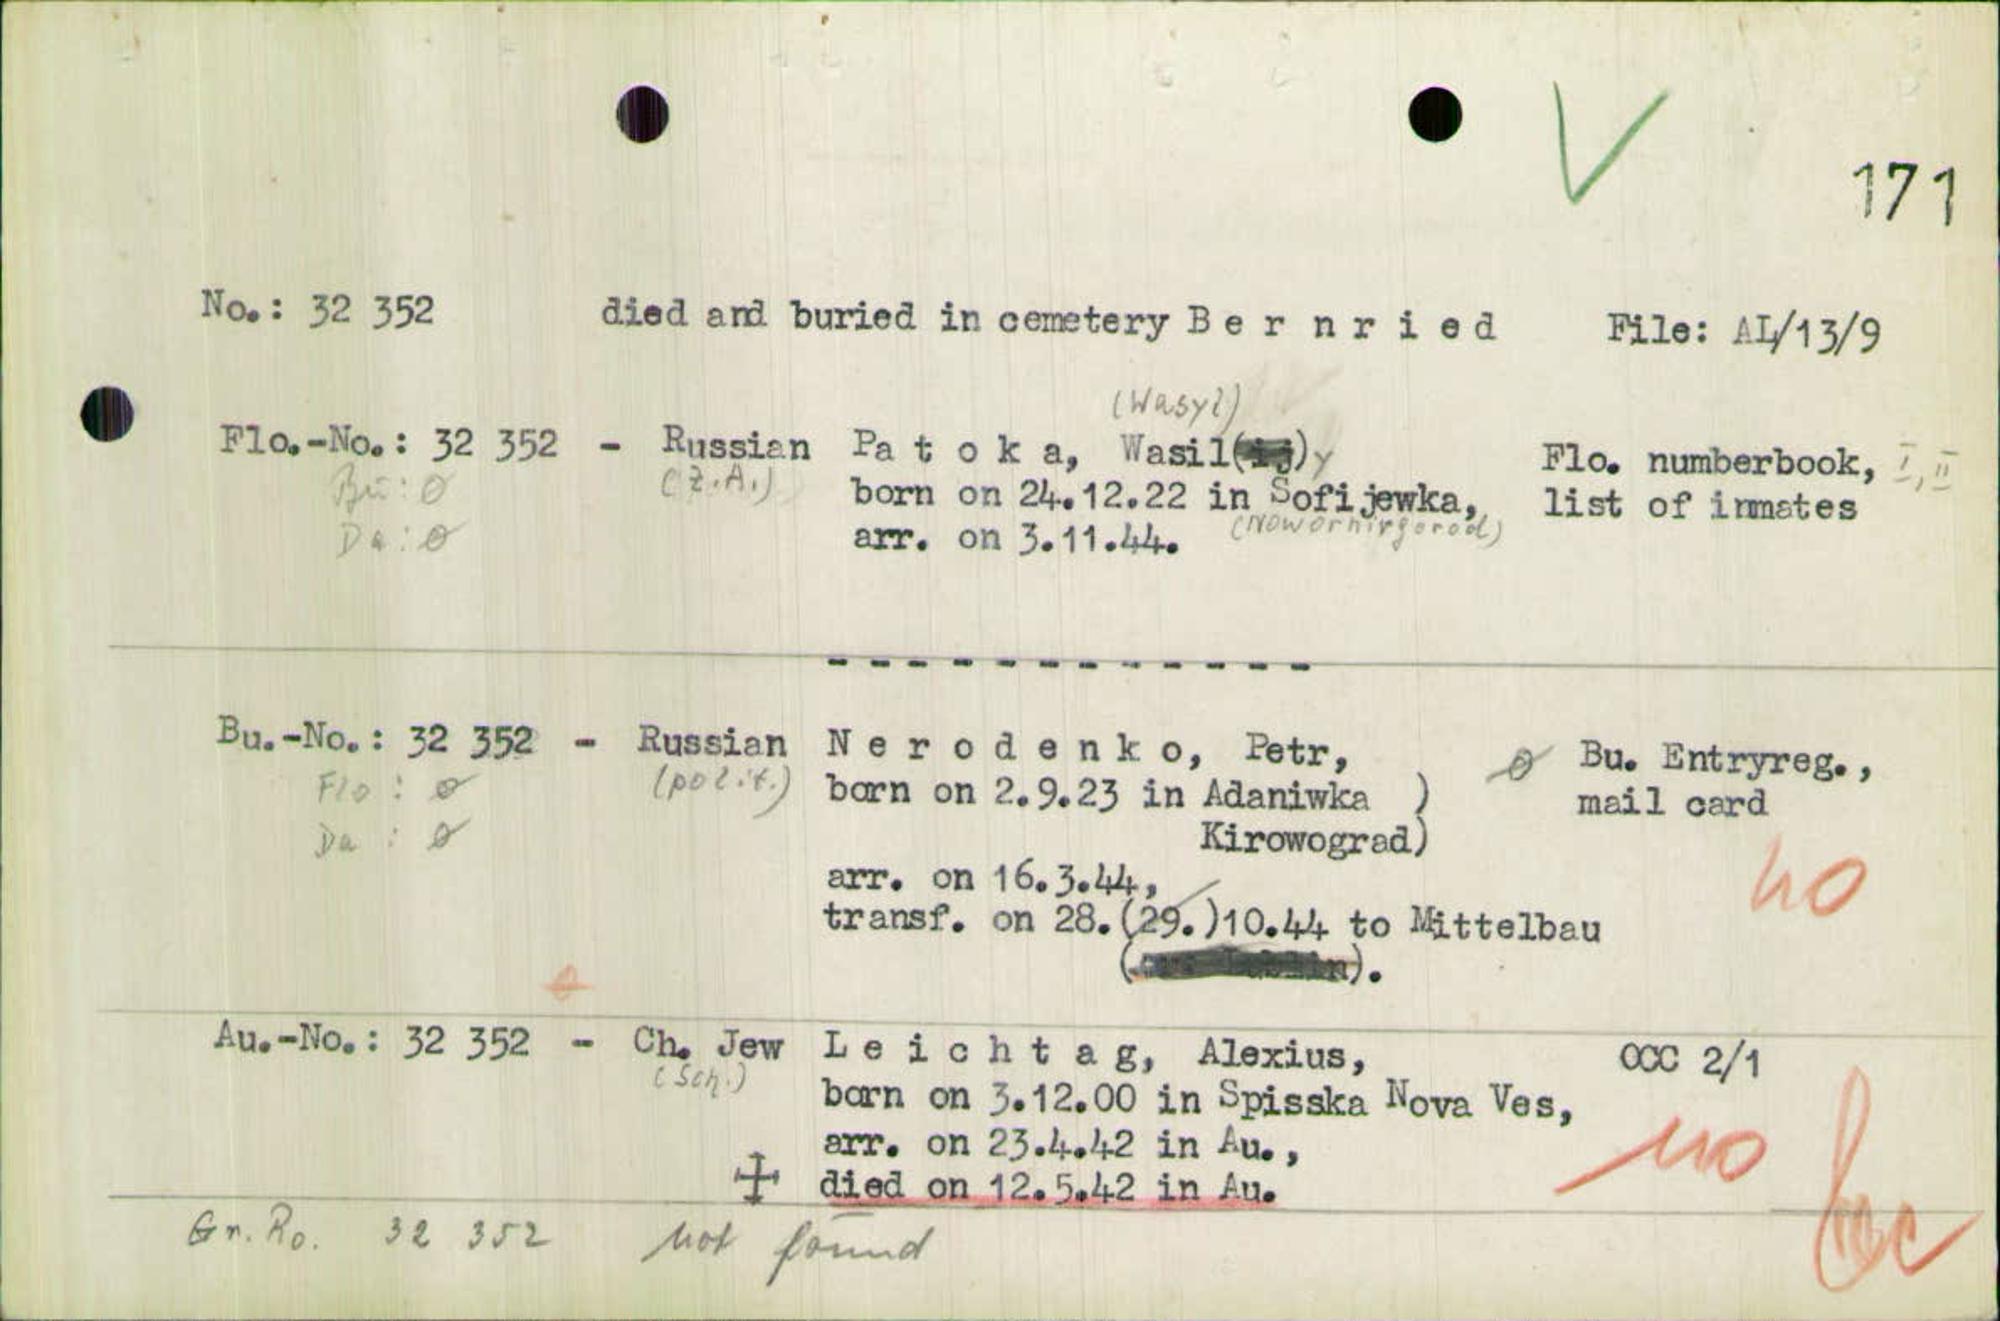 171
No.: 32 352 died and buried in cemetery B e r n r i e d File: AL/13/9
(Wasyl)
Flo.-No.: 32 352 - Russian Pa t o k a, Wasil(ij)y Flo. numberbook, I, II
Bu: ø (Z.A.) born on 24.12.22 in Sofijewka, list of inmates
Da: ø arr. on 3.11.44.
Bu.-No.: 32 352 - Russian N e r o d e n k o, Petr, ø Bu. Entryreg.,
Flo: ø (polit.) born on 2.9.23 in Adaniwka ) mail card
Da: ø Kirowograd)
no
arr. on 16.3.44,
transf. on 28.(29.)10.44 to Mittelbau
( ).
Au.-No.: 32 352 - Ch. Jew L e i c h t a g, Alexius, OCC 2/1
(Sch.) born on 3.12.00 in Spisska Nova Ves,
arr. on 23.4.42 in Au., no
died on 12.5.42 in Au.
Gr. Ro. 32 352 not found